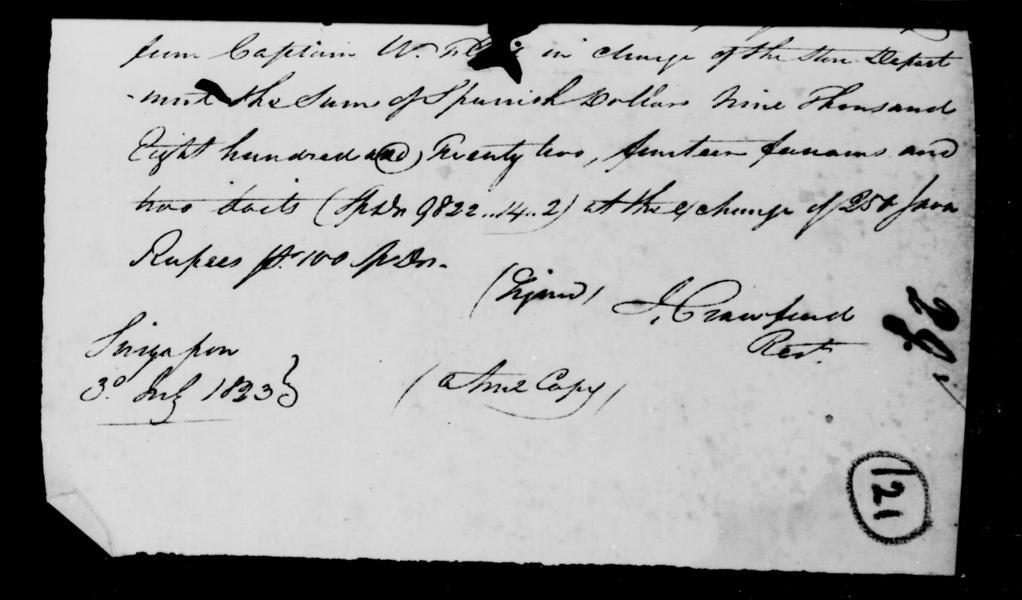 from Captain W. in charge of the Store Depart
-ment the Sum of Spanish Dollars Nine Thousand
Eight hundred and Twenty two, fourteen fanams and
two doits (SpDrs 9822..14..2) at the exchange of Java
Rupees pr. 100 SpDrs.
(Signed) J. Crawfurd
Rest.
Singapore
3d. July 1823
(a true Copy)
121